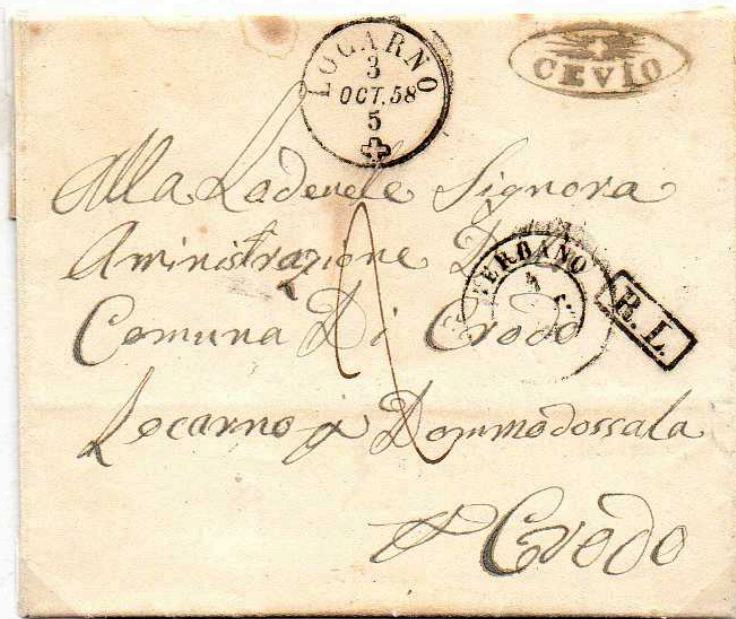 LOCARNO
3
OCT. 58
5
CEVIO
Alla Lodevole Signora
Aministrazione Di
VERBANO
4
R. L.
Comuna Di Crodo
2
Locarno p Dommodossala
p Crodo